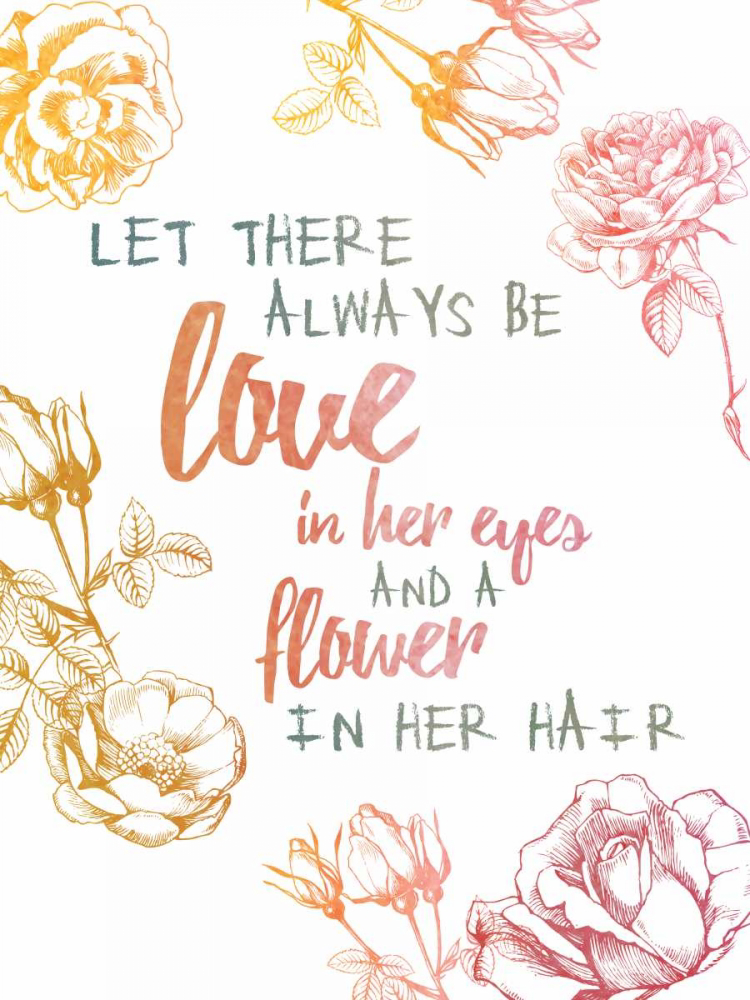 LET THERE
ALWAYS BE
love
in her eyes
AND A
flower
IN HER HAIR